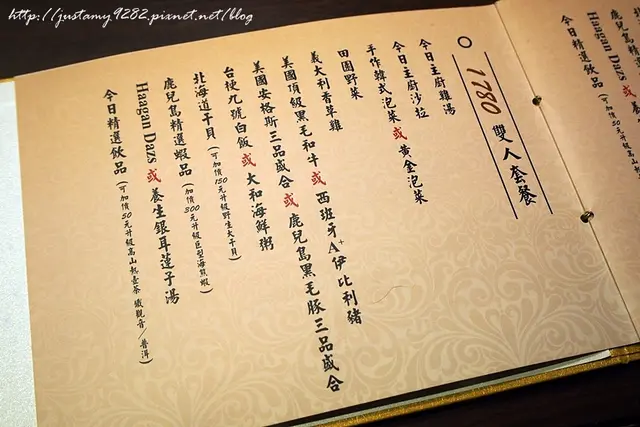 http://justamy9282.pixnet.net/blog
1780 雙人套餐
今日主廚雞湯
今日主廚沙拉
手作韓式泡菜 或 黃金泡菜
田園野菜
義大利香草雞
美國頂級黑毛和牛 或 西班牙A+伊比利豬
美國安格斯三品盛合 或 鹿兒島黑毛豚三品盛合
台梗九號白飯 或 大和海鮮粥
北海道干貝 (可加價150元升級野生大干貝)
鹿兒島精選蝦品 (加價300元升級巨型海熊蝦)
Haagan Dazs 或 養生銀耳蓮子湯
今日精選飲品 (可加價50元升級高山熱壺茶 鐵觀音/普洱)
鹿兒島精選蝦品
Haagan Dazs
今日精選飲品